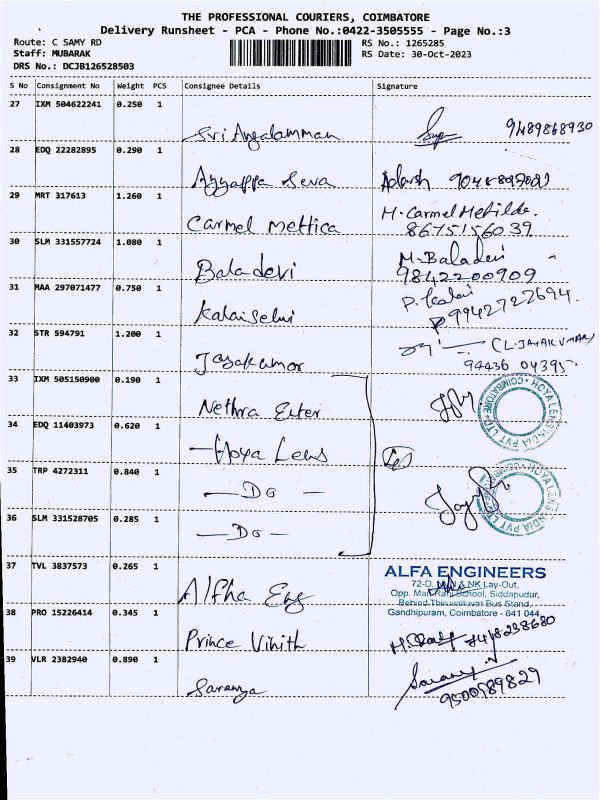 THE PROFESSIONAL COURIERS, COIMBATORE
Delivery Runsheet - PCA - Phone No.:0422-3505555 - Page No.:3
Route: C SAMY RD RS No.: 1265285
Staff: MUBARAK RS Date: 30-Oct-2023
DRS No.: DCJB126528503
S No Consignment No Weight PCS Consignee Details Signature
27 IXM 504622241 0.250 1
Sri Angalamman 9489868930
28 EDQ 22282895 0.290 1
Ayyappa Seva Adarsh
29 MRT 317613 1.260 1
Carmel Mettica M. Carmel Metilda.
8675156039
30 SLM 331557724 1.080 1
Baladevi M. Baladevi
9842200909
31 MAA 297071477 0.750 1
Kalaiselvi P. Kalai
9942722694.
32 STR 594791 1.200 1
Jayakumar (L. JAYAKUMAR)
94436 04395.
33 IXM 505150900 0.190 1
Nethra Enter
HOYA LENS INDIA PVT LTD COIMBATORE
34 EDQ 11403973 0.620 1
Hoya Lens
35 TRP 4272311 0.840 1
— Do —
HOYA LENS INDIA PVT LTD COIMBATORE
36 SLM 331528705 0.285 1
— Do —
37 TVL 3837573 0.265 1
Alfha Eng
ALFA ENGINEERS
72-D, & NK Lay-Out,
Opp. Mani School, Siddapudur,
Behind Thiruvalluvar Bus Stand,
Gandhipuram, Coimbatore - 641 044
38 PRO 15226414 0.345 1
Prince Vihith
39 VLR 2382940 0.890 1
Saranya Saranya
9500589829